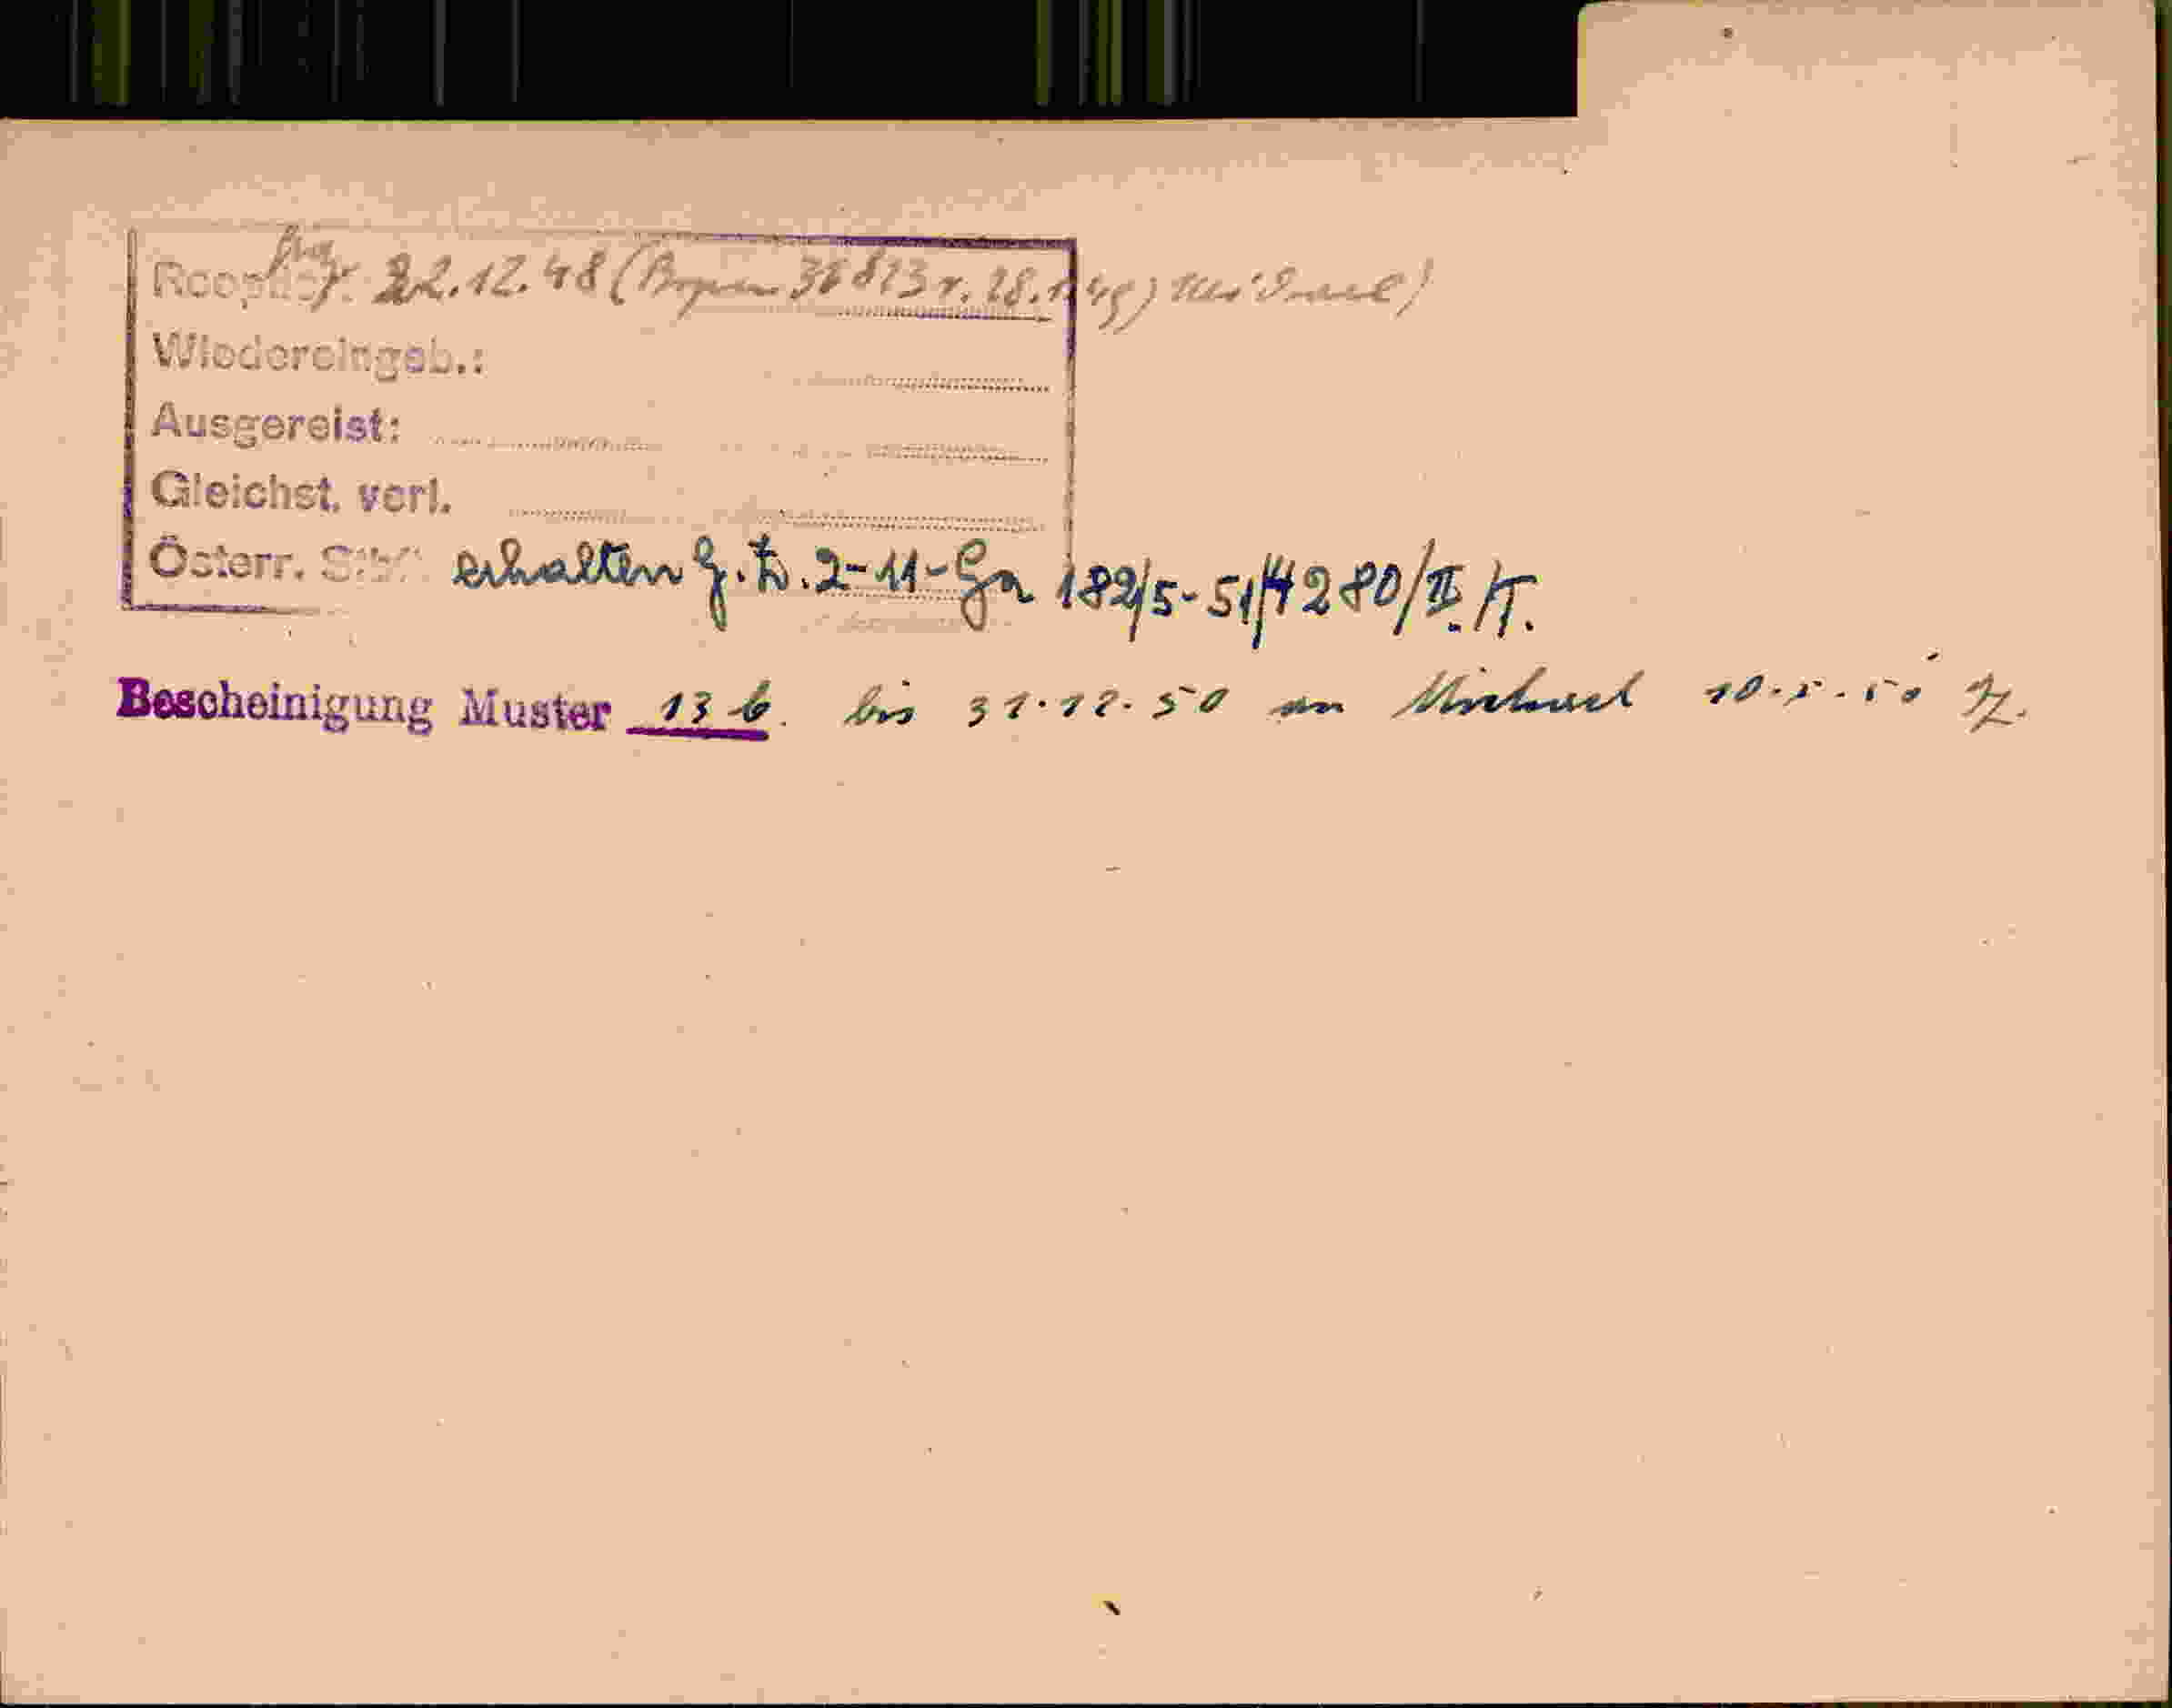 22.12.48 (Bozen 36 823 v. 28.1.49)
Wiedereingeb.:
Ausgereist:
Gleichst. verl.
Österr. Stb. erhalten G.Z. 2-11-Ga 182/5-51/4280/II./T.
Bescheinigung Muster 13 b. bis 31.12.50 an Michael 10.5.50